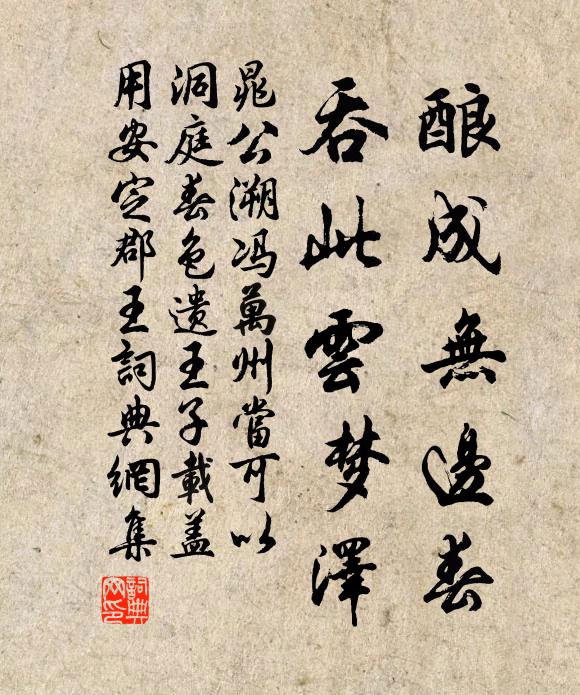 酿成無邊春
吞此雲梦澤
晁公溯冯萬州當可以
洞庭春色遺王子載盖
用安定郡王詞典網集
詞典網印